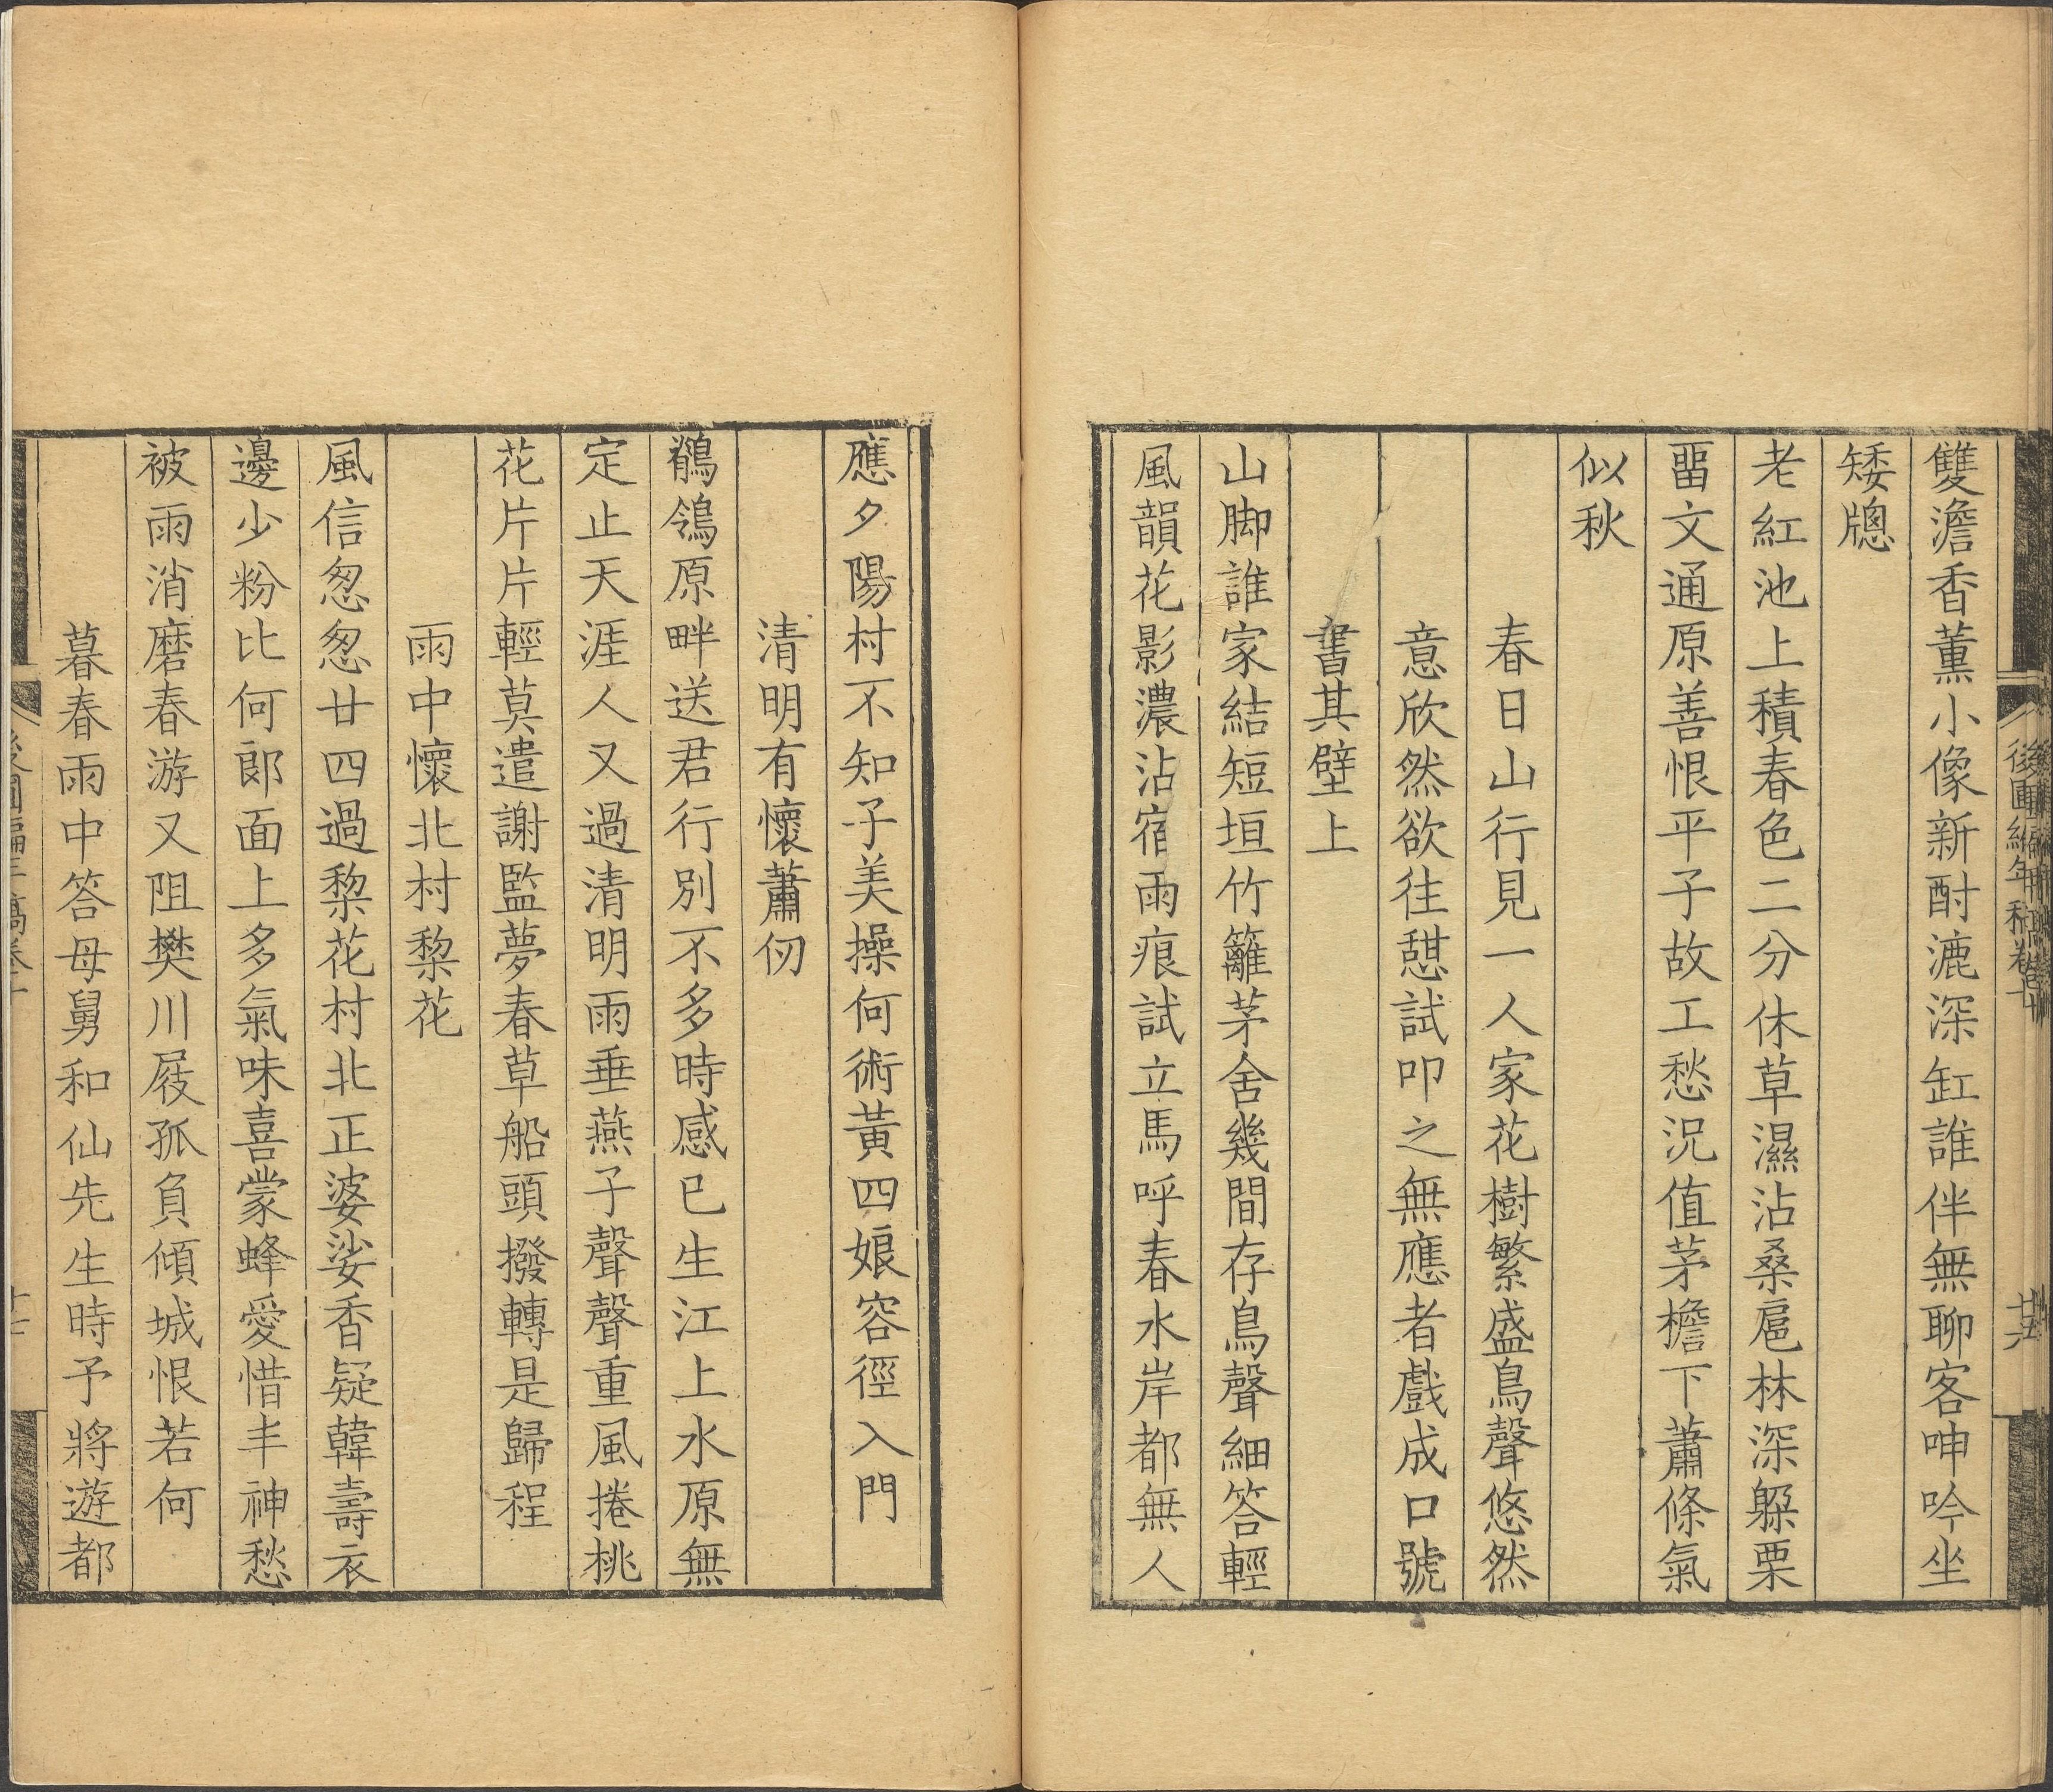 雙澹香薰小像新酎漉深缸誰伴無聊客呻吟坐
矮牕
老紅池上積春色二分休草濕沾桑扈林深躲栗
畱文通原善恨平子故工愁況值茅檐下蕭條氣
似秋
春日山行見一人家花樹繁盛鳥聲悠然
意欣然欲往憇試叩之無應者戲成口號
書其壁上
山脚誰家結短垣竹籬茅舍幾間存鳥聲細答輕
風韻花影濃沾宿雨痕試立馬呼春水岸都無人
應夕陽村不知子美操何術黃四娘容徑入門
清明有懷蕭仞
鶺鴒原畔送君行別不多時感已生江上水原無
定止天涯人又過清明雨垂燕子聲聲重風捲桃
花片片輕莫遣謝監夢春草船頭撥轉是歸程
雨中懷北村棃花
風信怱怱廿四過棃花村北正婆娑香疑韓壽衣
邊少粉比何郎面上多氣味喜蒙蜂愛惜丰神愁
被雨消磨春游又阻樊川屐孤負傾城恨若何
暮春雨中答母舅和仙先生時予將遊都
後圃編年稿卷十